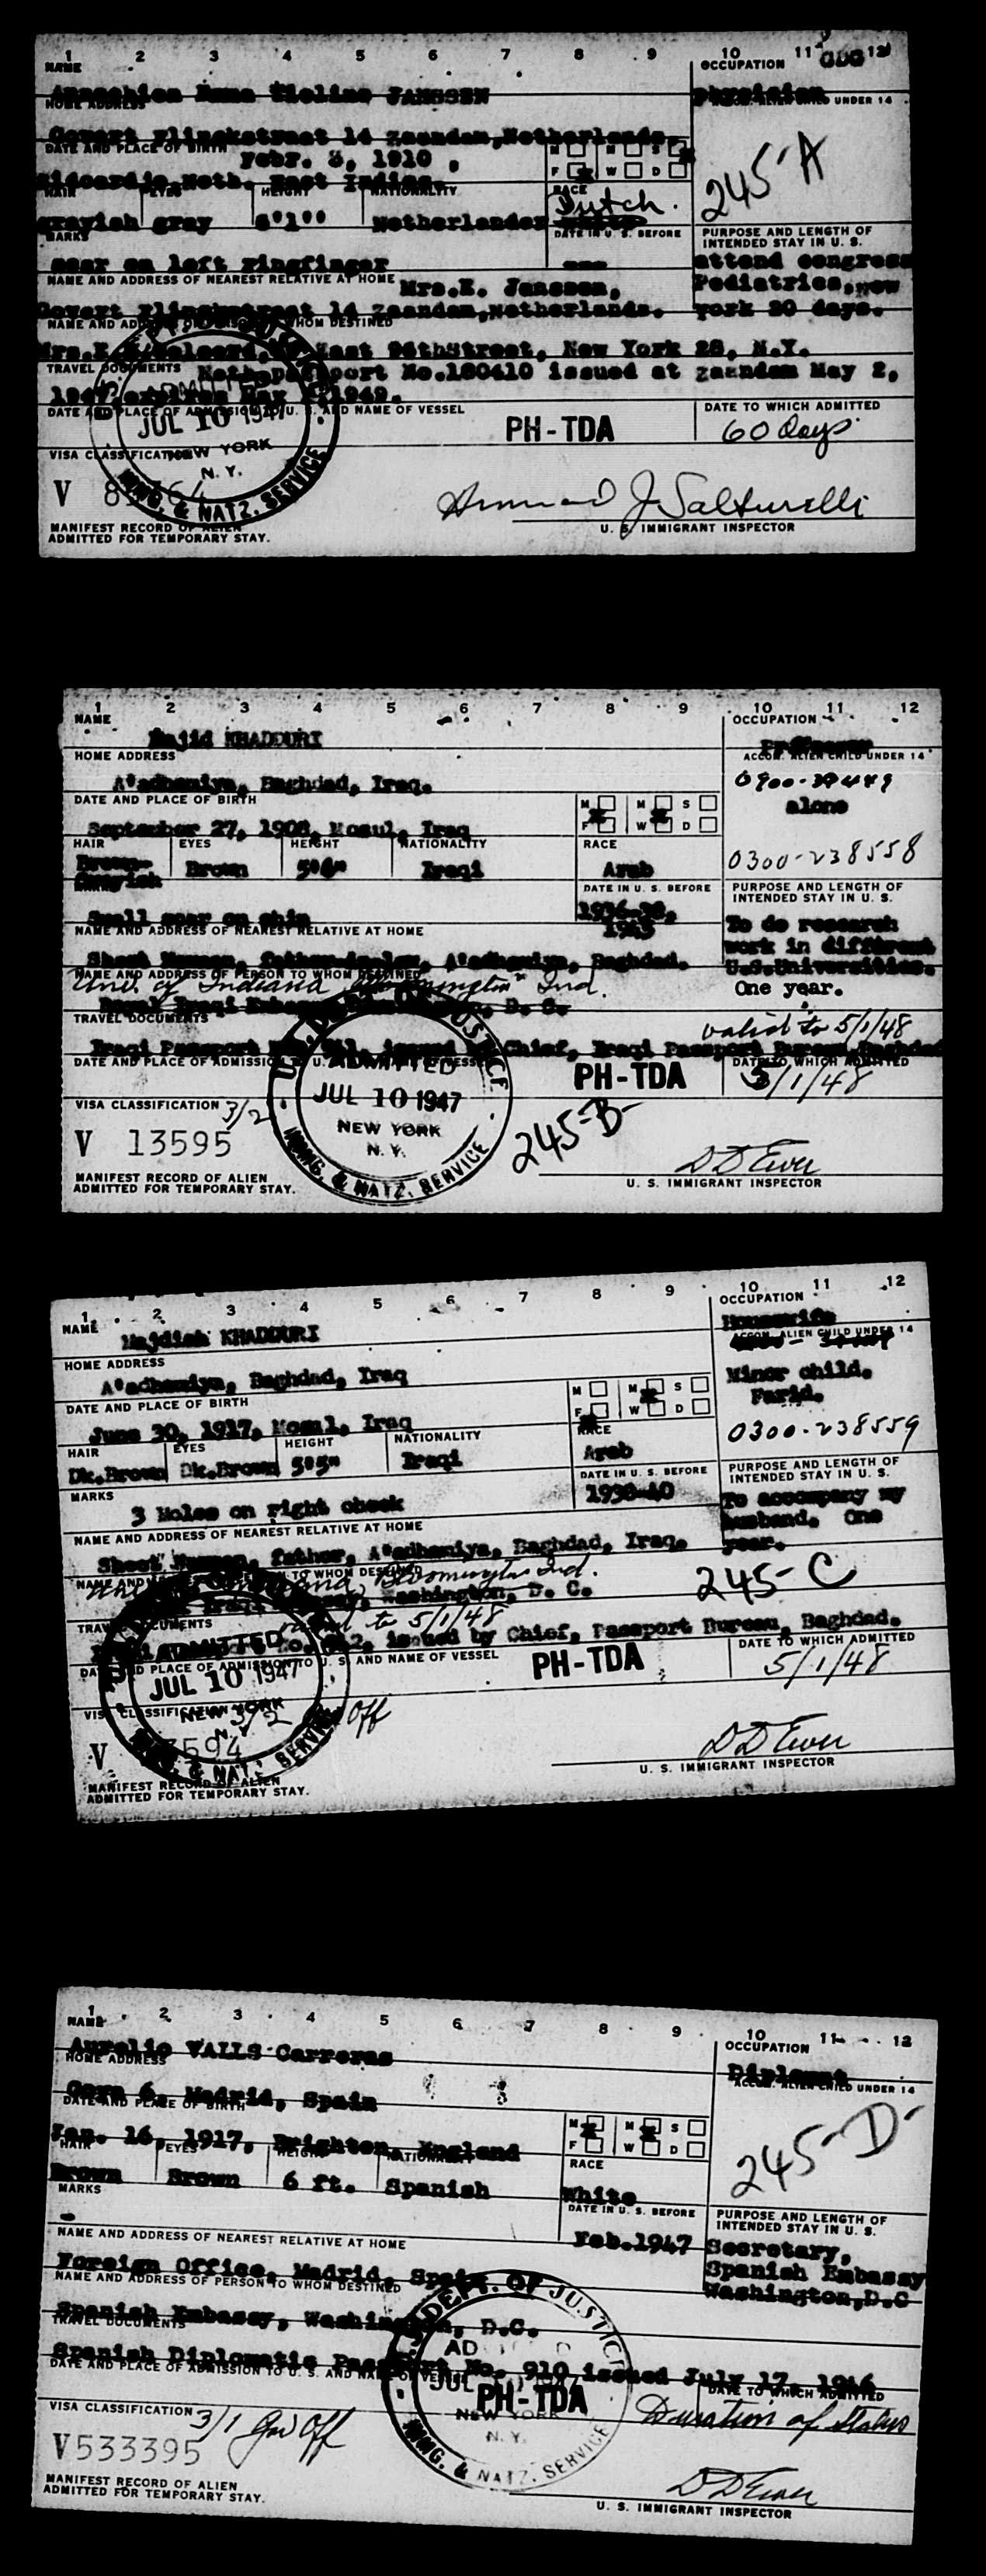 1 2 3 4 5 6 7 8 9 10 11 12
NAME
OCCUPATION
JANSSEN
Physician
HOME ADDRESS
UNDER 14
Govert Flinckstraat 14 Zaandam, Netherlands.
DATE AND PLACE OF BIRTH
Febr. 3, 1910.
M M S
F W D
245-A
Neth. East Indies.
HAIR EYES HEIGHT NATIONALITY RACE
grayish gray Netherlander Dutch.
MARKS
DATE IN U. S. BEFORE
PURPOSE AND LENGTH OF
INTENDED STAY IN U. S.
scar on left ringfinger
---
attend congress
Pediatrics, New
York 20 days.
NAME AND ADDRESS OF NEAREST RELATIVE AT HOME
Mrs.E. Janssen,
Govert Flinckstraat 14 Zaandam, Netherlands.
NAME AND ADDRESS OF PERSON TO WHOM DESTINED
East 96thStreet, New York 28, N.Y.
TRAVEL DOCUMENTS
No.180410 issued at Zaandam May 2,
1947, expires May 2, 1949.
DATE AND PLACE OF ADMISSION TO U. S. AND NAME OF VESSEL
DATE TO WHICH ADMITTED
ADMITTED
JUL 10 1947
NEW YORK
N. Y.
IMMG. & NATZ. SERVICE
PH-TDA
60 days.
VISA CLASSIFICATION
V
U. S. IMMIGRANT INSPECTOR
MANIFEST RECORD OF ALIEN
ADMITTED FOR TEMPORARY STAY.
1 2 3 4 5 6 7 8 9 10 11 12
NAME
OCCUPATION
Majid KHADDURI
Professor
HOME ADDRESS
ACCOM. ALIEN CHILD UNDER 14
A'adhamiya, Baghdad, Iraq.
alone
DATE AND PLACE OF BIRTH
M M S
F W D
September 27, 1908, Mosul, Iraq
0300-238558
HAIR EYES HEIGHT NATIONALITY RACE
Brown-
Grayish Brown 5'6" Iraqi Arab
DATE IN U. S. BEFORE
PURPOSE AND LENGTH OF
INTENDED STAY IN U. S.
Small scar on chin
1936-38,
1945
To do research
work in different
U.S.Universities.
One year.
NAME AND ADDRESS OF NEAREST RELATIVE AT HOME
A'adhamiya, Baghdad.
NAME AND ADDRESS OF PERSON TO WHOM DESTINED
Univ. of Indiana Bloomington Ind.
TRAVEL DOCUMENTS
valid to 5/1/48
issued by Chief, Iraqi Passport Bureau, Baghdad
DATE AND PLACE OF ADMISSION TO U. S. AND NAME OF VESSEL
DATE TO WHICH ADMITTED
ADMITTED
JUL 10 1947
NEW YORK
N. Y.
IMMG. & NATZ. SERVICE
PH-TDA
5/1/48
VISA CLASSIFICATION 3/2
245-B-
V 13595
U. S. IMMIGRANT INSPECTOR
MANIFEST RECORD OF ALIEN
ADMITTED FOR TEMPORARY STAY.
1 2 3 4 5 6 7 8 9 10 11 12
NAME
OCCUPATION
Majdiah KHADDURI
Housewife
HOME ADDRESS
ACCOM. ALIEN CHILD UNDER 14
A'adhamiya, Baghdad, Iraq
Minor child.
Farid.
DATE AND PLACE OF BIRTH
M M S
F W D
June 30, 1917, Mosul, Iraq
0300-238559
HAIR EYES HEIGHT NATIONALITY RACE
Dk.Brown Dk.Brown 5'5" Iraqi Arab
MARKS
DATE IN U. S. BEFORE
PURPOSE AND LENGTH OF
INTENDED STAY IN U. S.
3 Moles on right cheek
1938-40
To accompany my
husband. One
year.
NAME AND ADDRESS OF NEAREST RELATIVE AT HOME
father, A'adhamiya, Baghdad, Iraq.
TO WHOM DESTINED
Indiana, Bloomington Ind.
Washington, D. C.
245-C
TRAVEL DOCUMENTS
to 5/1/48
issued by Chief, Passport Bureau, Baghdad.
DATE AND PLACE OF ADMISSION TO U. S. AND NAME OF VESSEL
DATE TO WHICH ADMITTED
ADMITTED
JUL 10 1947
NEW YORK
N. Y.
IMMG. & NATZ. SERVICE
PH-TDA
5/1/48
VISA CLASSIFICATION 3/2 Off
V
U. S. IMMIGRANT INSPECTOR
MANIFEST RECORD OF ALIEN
ADMITTED FOR TEMPORARY STAY.
1 2 3 4 5 6 7 8 9 10 11 12
NAME
OCCUPATION
Aurelio VALLS Carreras
Diplomat
HOME ADDRESS
ACCOM. ALIEN CHILD UNDER 14
Goya 6, Madrid, Spain
DATE AND PLACE OF BIRTH
M M S
F W D
245-D-
Jan. 16, 1917, Brighton, England
HAIR EYES HEIGHT NATIONALITY RACE
Brown Brown 6 ft. Spanish White
MARKS
DATE IN U. S. BEFORE
PURPOSE AND LENGTH OF
INTENDED STAY IN U. S.
-
Feb.1947
Secretary,
Spanish Embassy
Washington, D.C
NAME AND ADDRESS OF NEAREST RELATIVE AT HOME
Foreign Office, Madrid, Spain
NAME AND ADDRESS OF PERSON TO WHOM DESTINED
Spanish Embassy, Washington, D.C.
TRAVEL DOCUMENTS
Spanish Diplomatic Passport No. 910 issued July 17, 1946
DATE AND PLACE OF ADMISSION TO U. S. AND NAME OF VESSEL
DATE TO WHICH ADMITTED
DEPT. OF JUSTICE
JUL
NEW YORK
N. Y.
IMMG. & NATZ. SERVICE
PH-TDA
Duration of Status
VISA CLASSIFICATION 3/1 Gov Off
V533395
U. S. IMMIGRANT INSPECTOR
MANIFEST RECORD OF ALIEN
ADMITTED FOR TEMPORARY STAY.